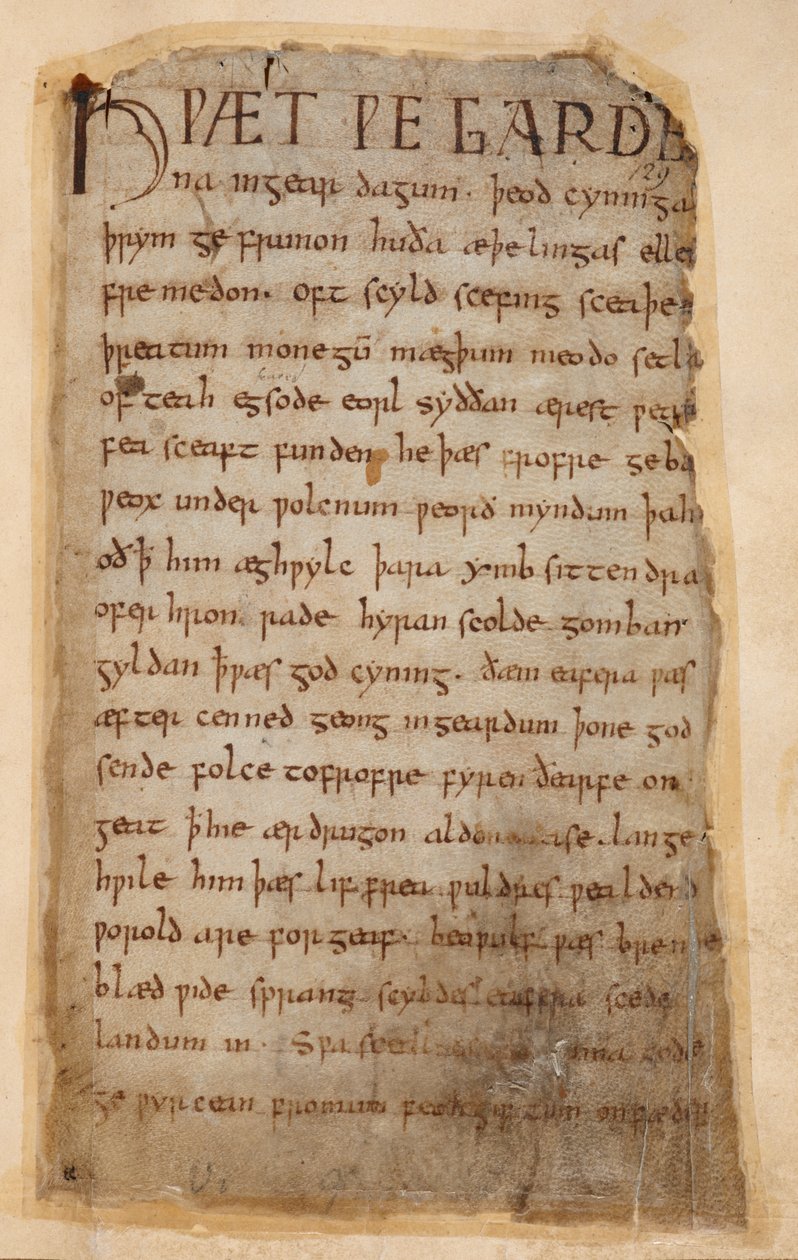 HǷÆT ǷE GARDE
129
na ingear dagum. þeod cyninga
þrym ge frunon huða æþelingas elle
fre medon. oft scyld scefing sceaþe
þreatum monegū mægþum meodo setla
of teah egsode eorl syððan ærest ƿear
fea sceaft funden he þæs frofre geba
ƿeox under ƿolcnum ƿeorð myndum þah
oð ꝥ him æghƿylc þara ymb sittendra
ofer hron rade hyran scolde gomban
gyldan ꝥ ƿæs god cyning. ðæm eafera ƿæs
æfter cenned geong ingeardum þone god
sende folce tofrofre fyren ðearfe on
geat ꝥ hie ær drugon aldor ase. lange
hƿile him þæs lif frea ƿuldres ƿealdend
ƿorold are for geaf. beoƿulf ƿæs breme
blæd ƿide sprang scyldes eafera scede
landum in. Sƿa gode
ge ƿyrcean fromum feoh giftum on fæder